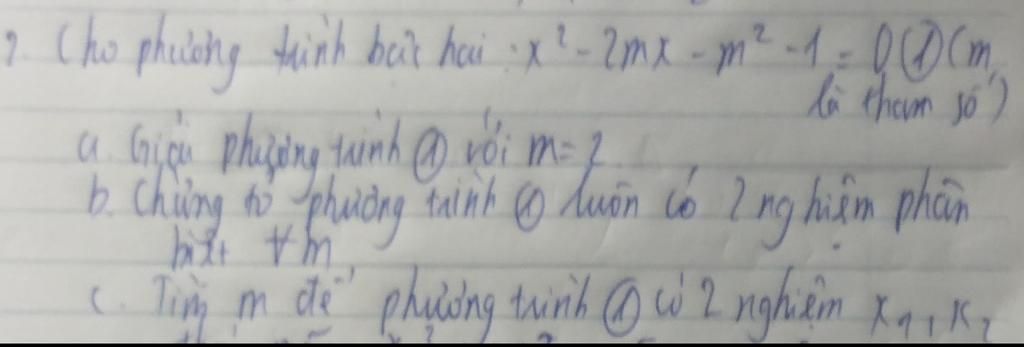 2. Cho phương trình bậc hai : x² - 2mx - m² - 1 = 0 ① (m
là tham số)
a. Giải phương trình ① với m = 2
b. Chứng tỏ phương trình ① luôn có 2 nghiệm phân
biệt ∀m
c. Tìm m để phương trình ① có 2 nghiệm x₁, x₂